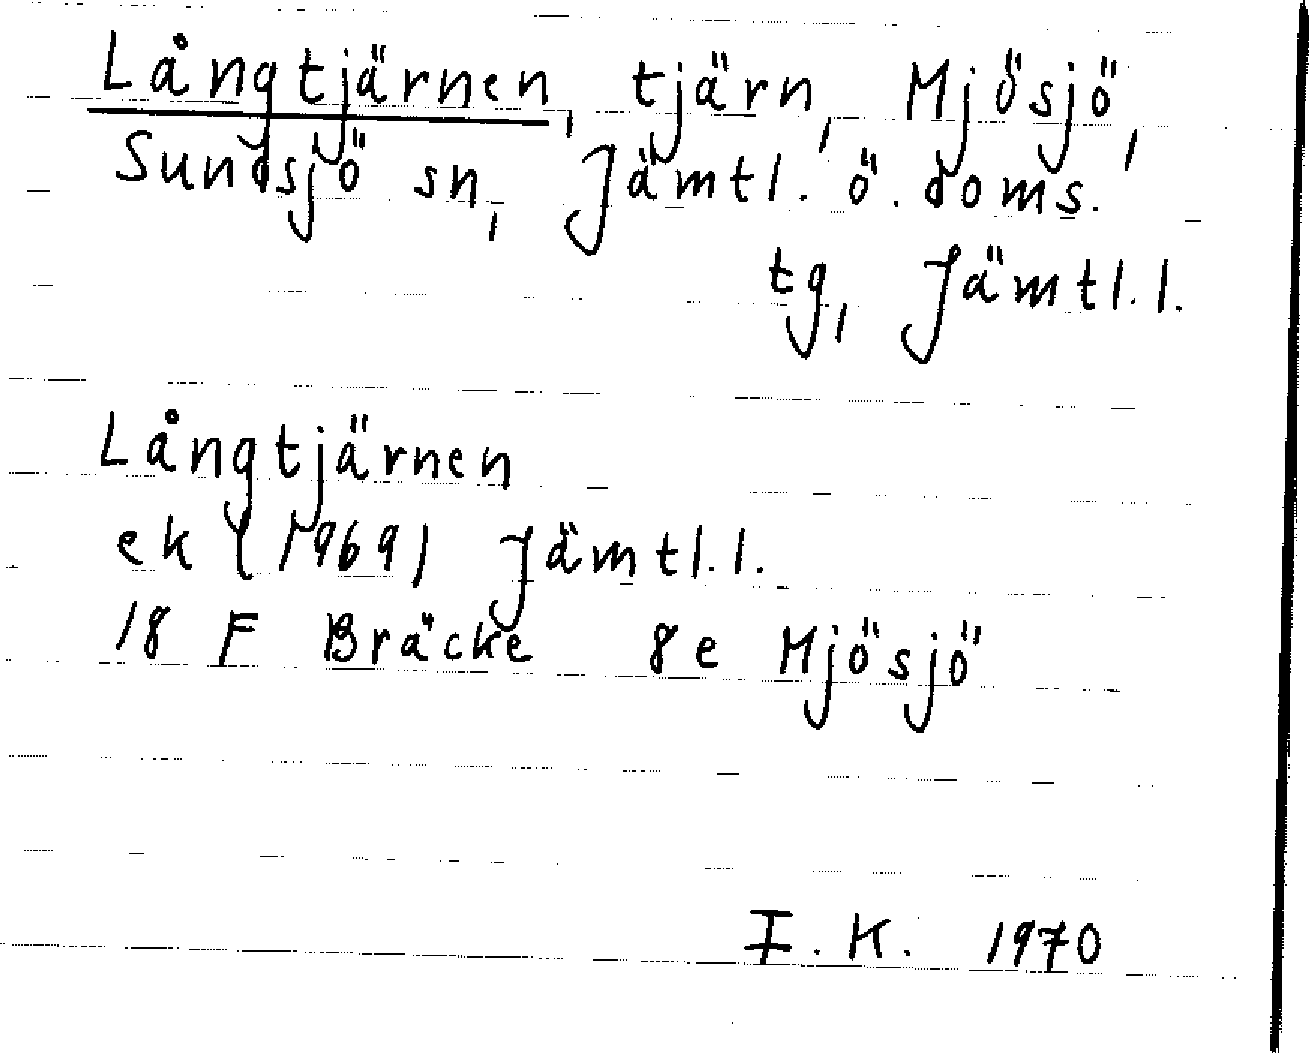 Långtjärnen, tjärn, Mjösjö,
Sundsjö sn, Jämtl. ö. doms.
tg, Jämtl. l.
Långtjärnen
ek (1969) Jämtl. l.
18 F Bräcke 8e Mjösjö
I. K. 1970